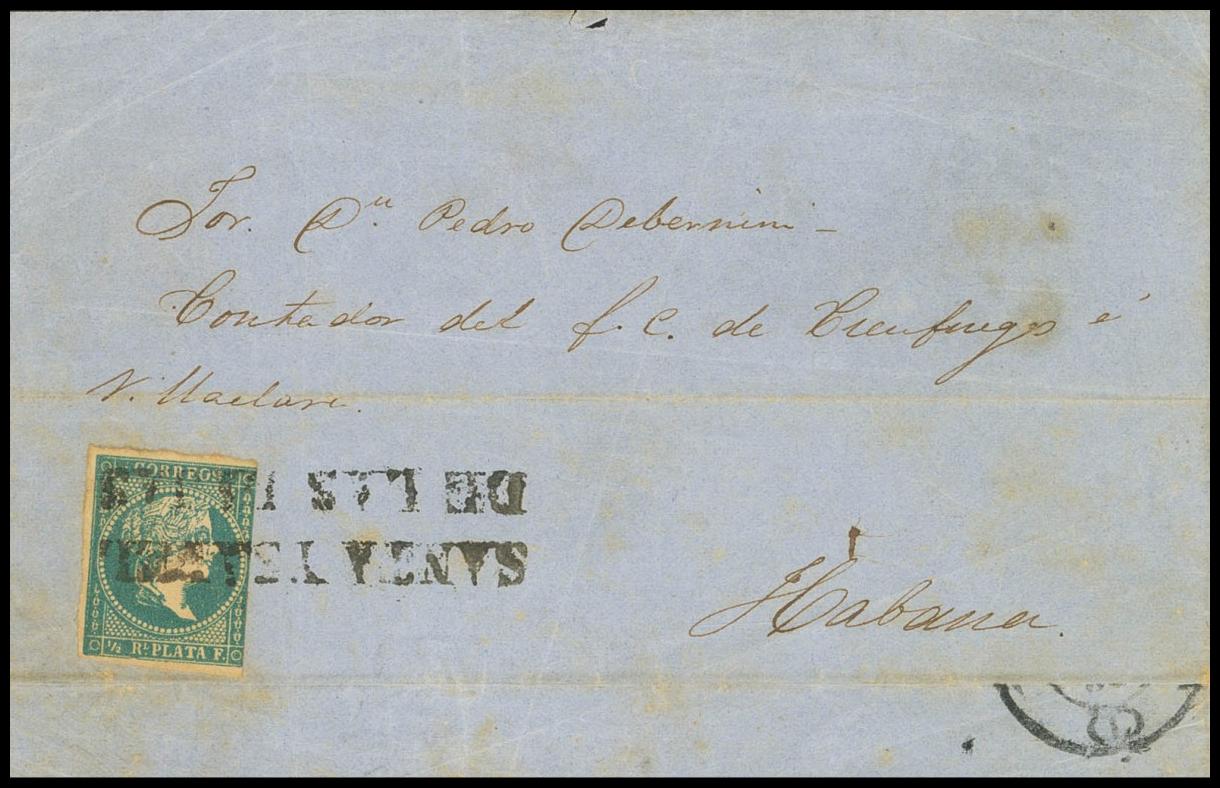 Sor. Dn. Pedro Debernini -
Contador del f. C. de Cienfuegos é
Villaclara.
CORREOS
½ Rl. PLATA F.
SANTA YSABEL
DE LAS LAJAS
Habana.